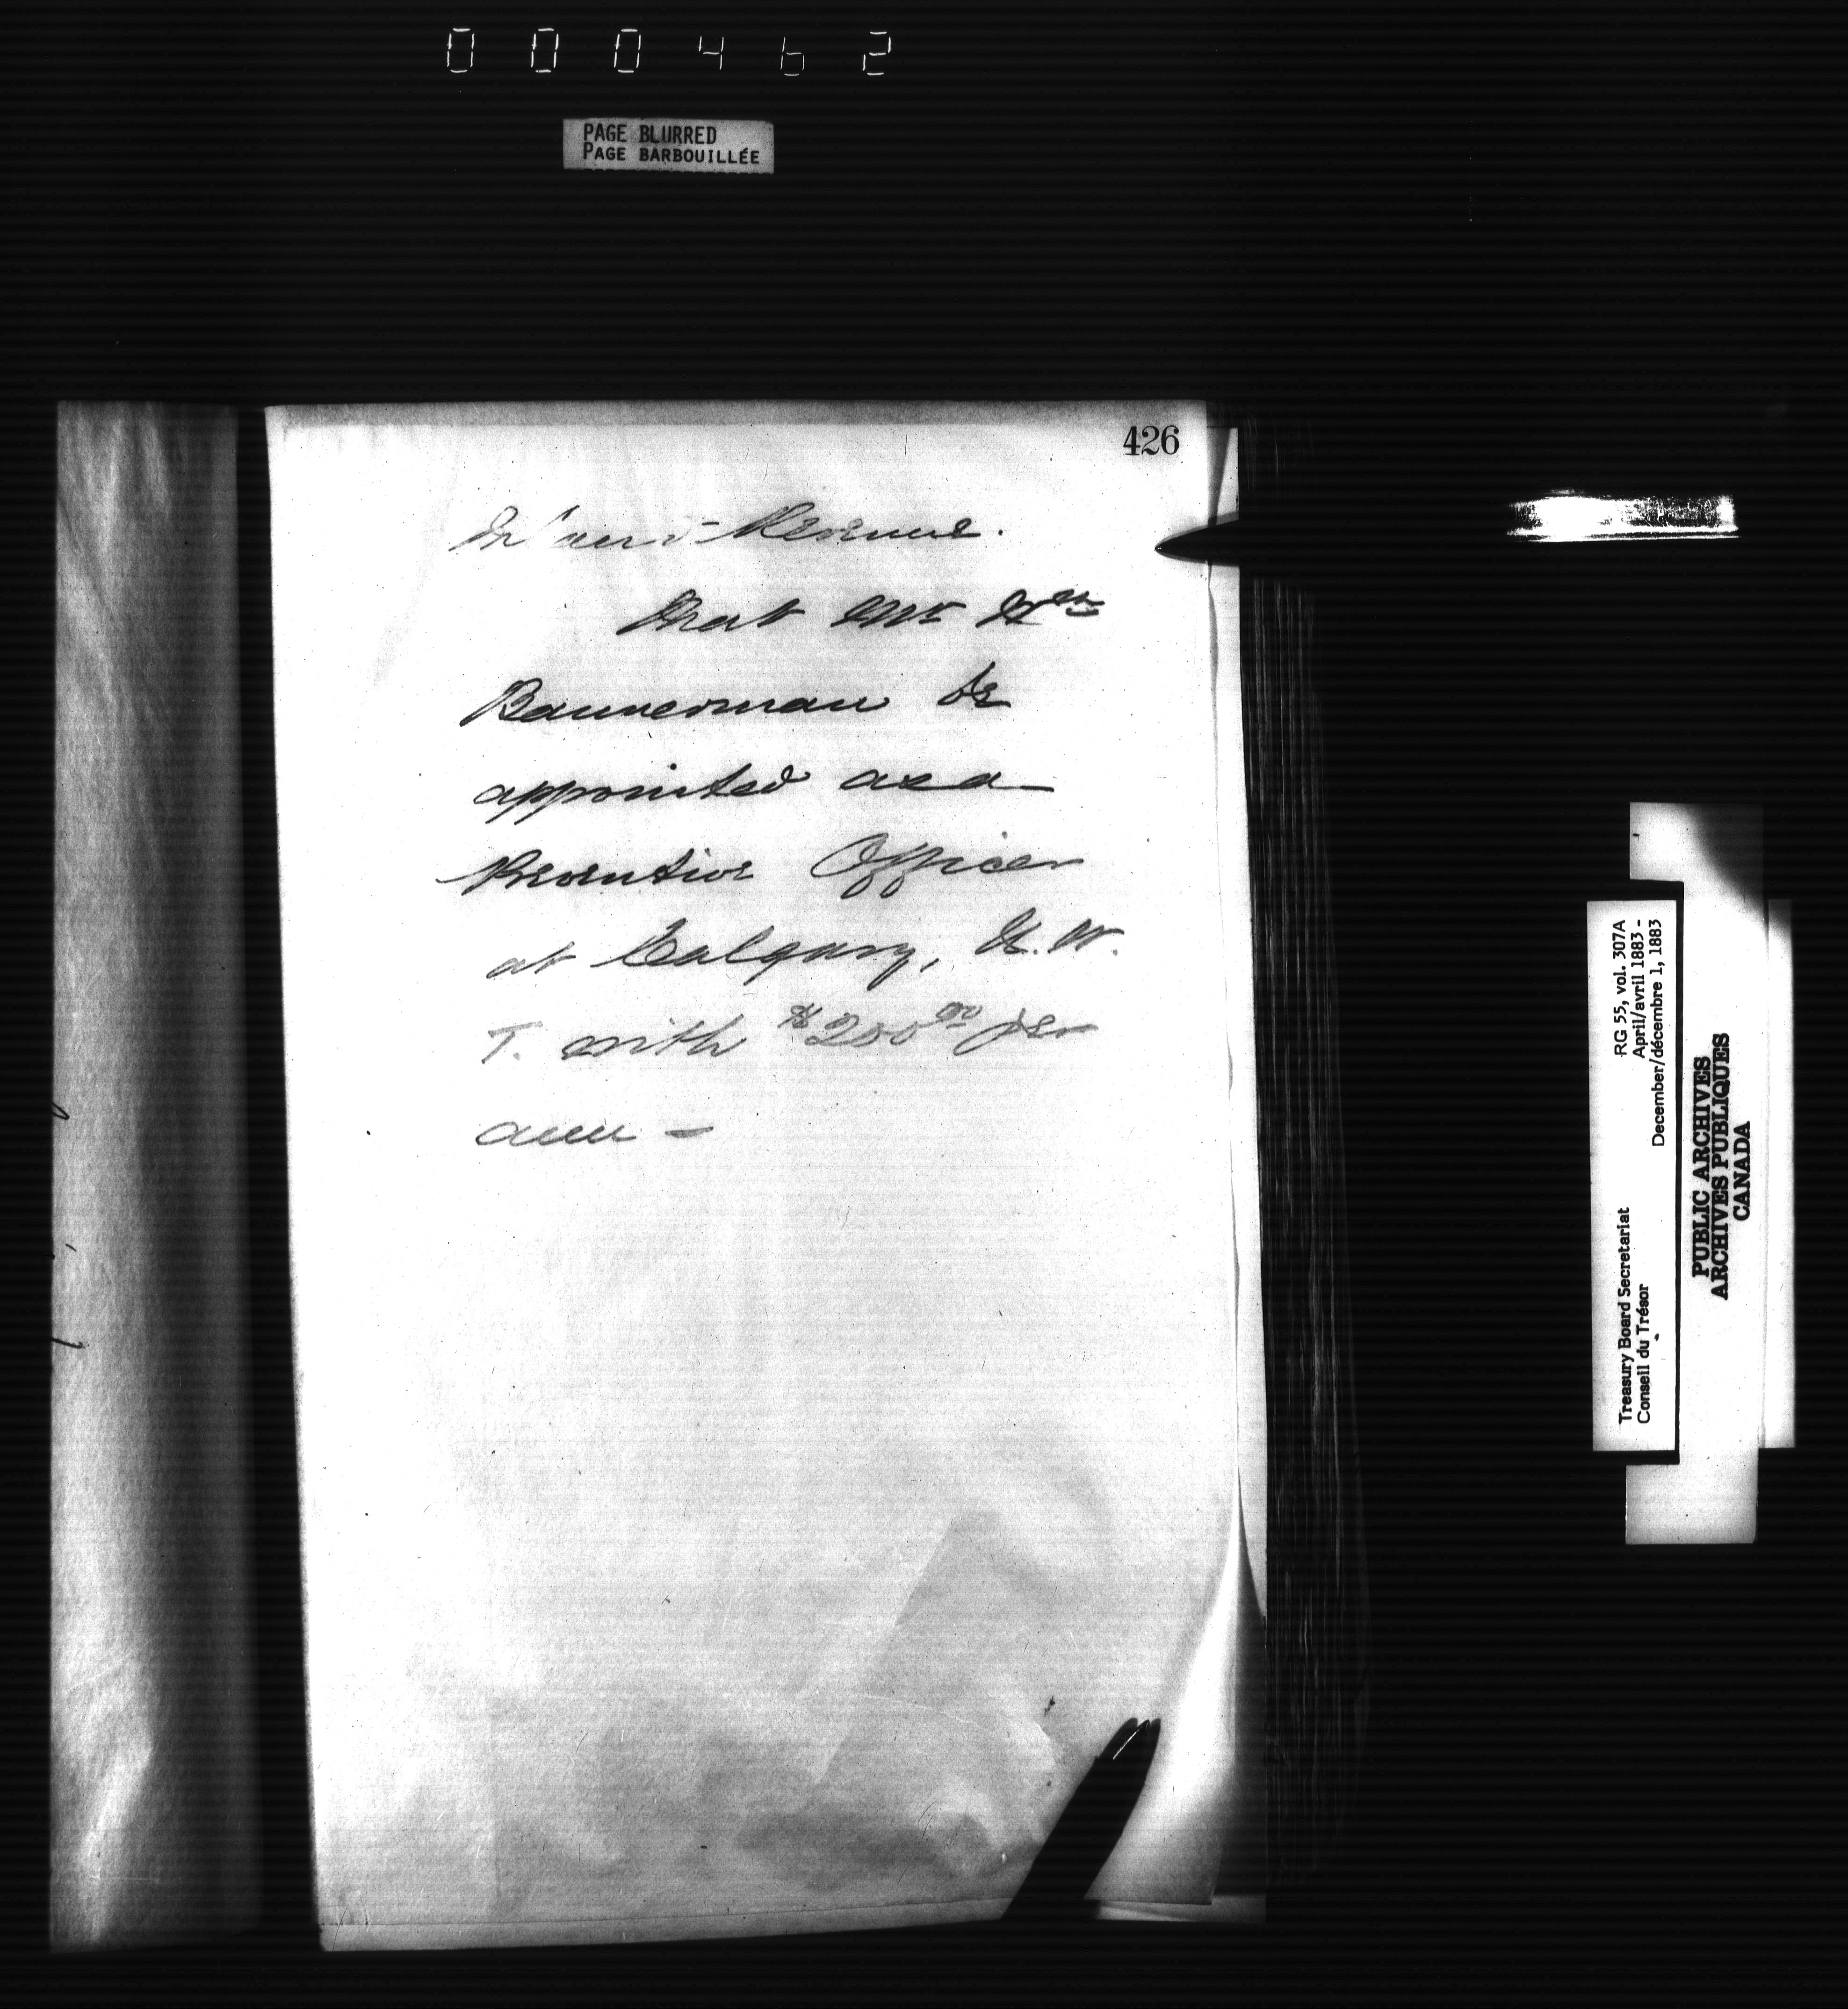 000462
PAGE BLURRED
PAGE BARBOUILLÉE
426
Inland Revenue.
that Mr Wm
Bannerman be
appointed as a
Preventive Officer
at Calgary, N.W.
T. with $200 00 per
ann —
RG 55, vol. 307A
April/avril 1883 -
December/décembre 1, 1883
Treasury Board Secretariat
Conseil du Trésor
PUBLIC ARCHIVES
ARCHIVES PUBLIQUES
CANADA